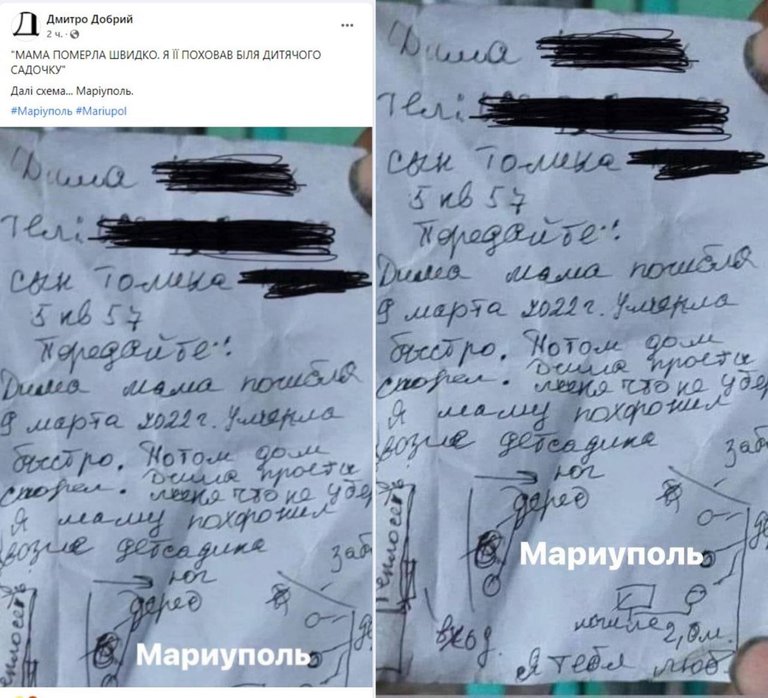 Дмитро Добрий
2 ч.
"МАМА ПОМЕРЛА ШВИДКО. Я ЇЇ ПОХОВАВ БІЛЯ ДИТЯЧОГО
САДОЧКУ"
Далі схема... Маріуполь.
#Маріуполь #Mariupol
Дима
сын Толика
5 кв 57
Передайте!!
Дима мама погибла
9 марта 2022 г. Умерла
быстро. Потом дом
сгорел. Дима прости
меня что не убер
Я маму похоронил
возле детсадика
юг
дерев
заб
Теплосеть
Мариуполь
Дима
сын Толика
5 кв 57
Передайте!!
Дима мама погибла
9 марта 2022 г. Умерла
быстро. Потом дом
сгорел. Дима прости
меня что не убер
Я маму похоронил
возле детсадика
заб
юг
дерев
Теплосеть
Мариуполь
вход
могила 2,0 м.
Я тебя люб